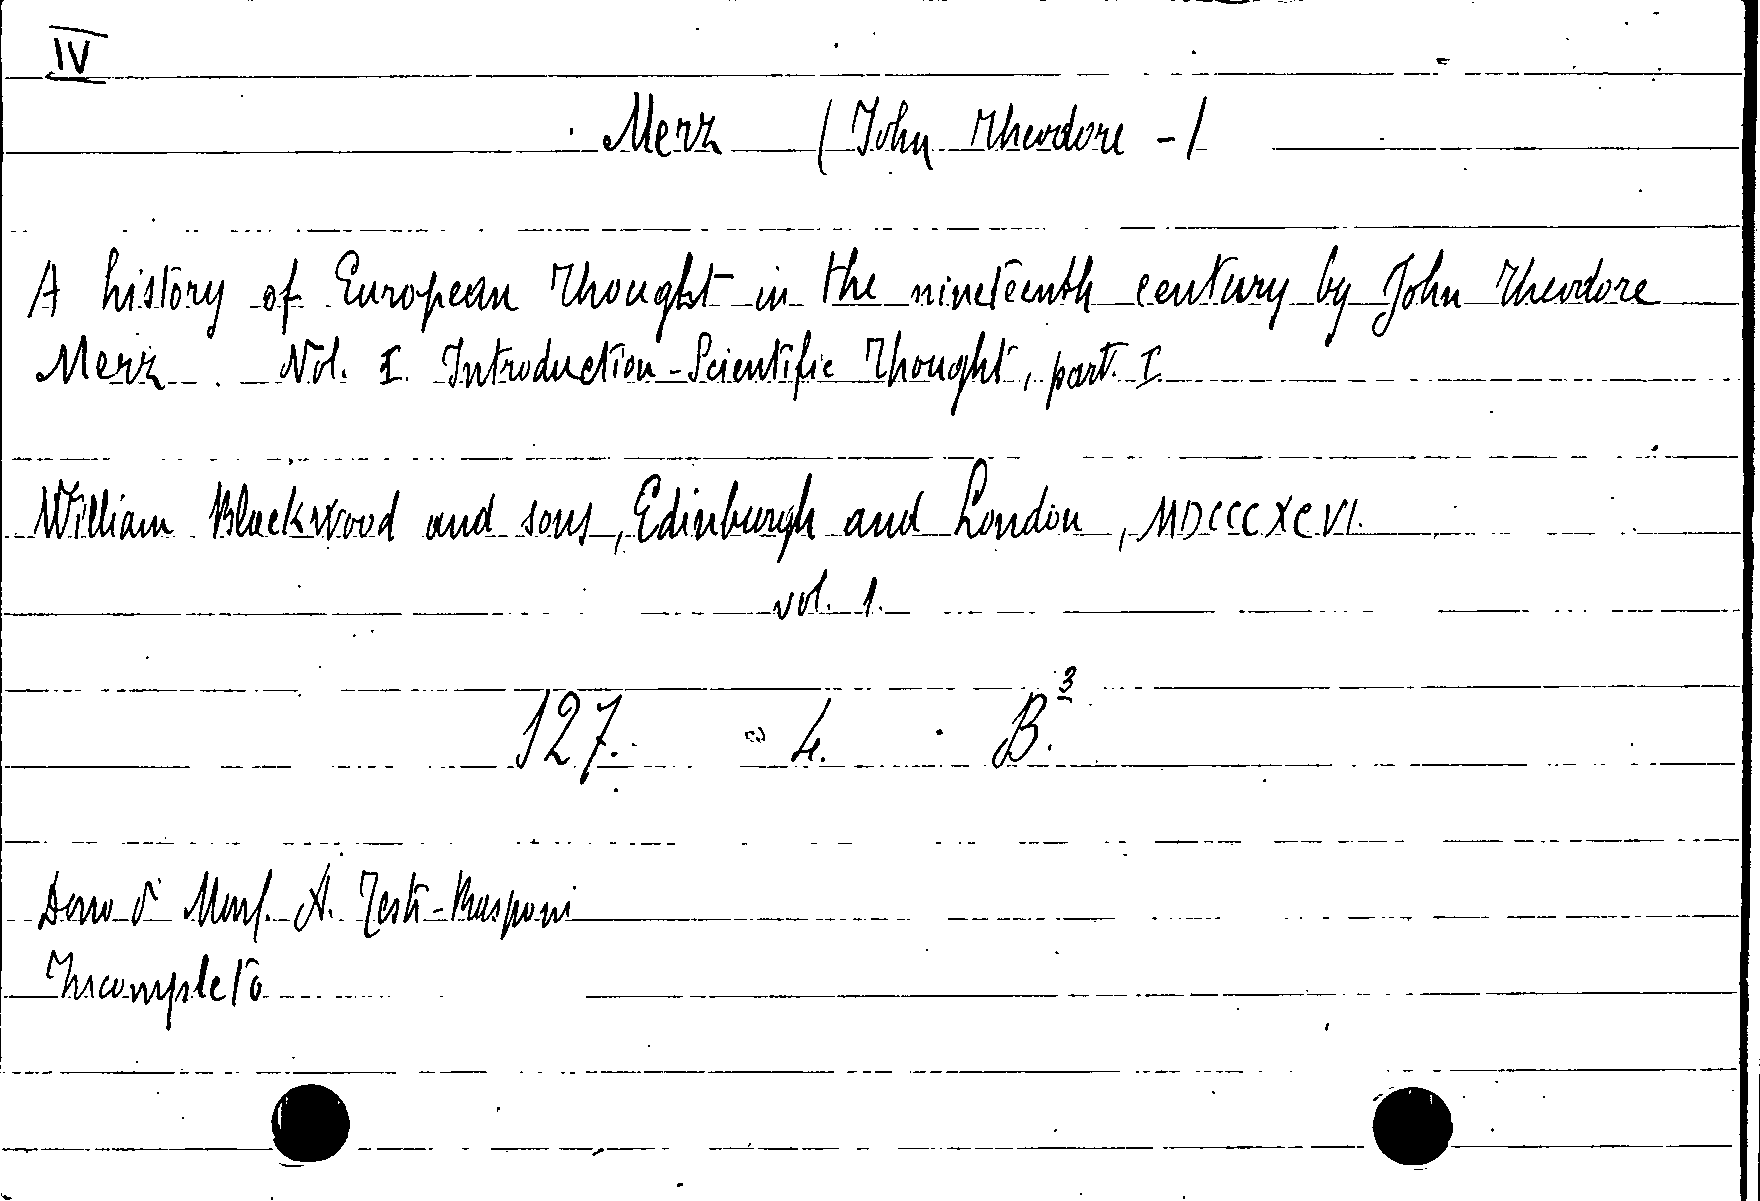 IV
Merz (John Theodore -)
A history of European Thought in the nineteenth century by John Theodore
Merz. Vol. I. Introduction - Scientific Thought, part. I.
William Blackwood and sons, Edinburgh and London, MDCCCXCVI.
vol. 1.
127. 4. B.3
Dono A. Testi-Rasponi
Incompleto